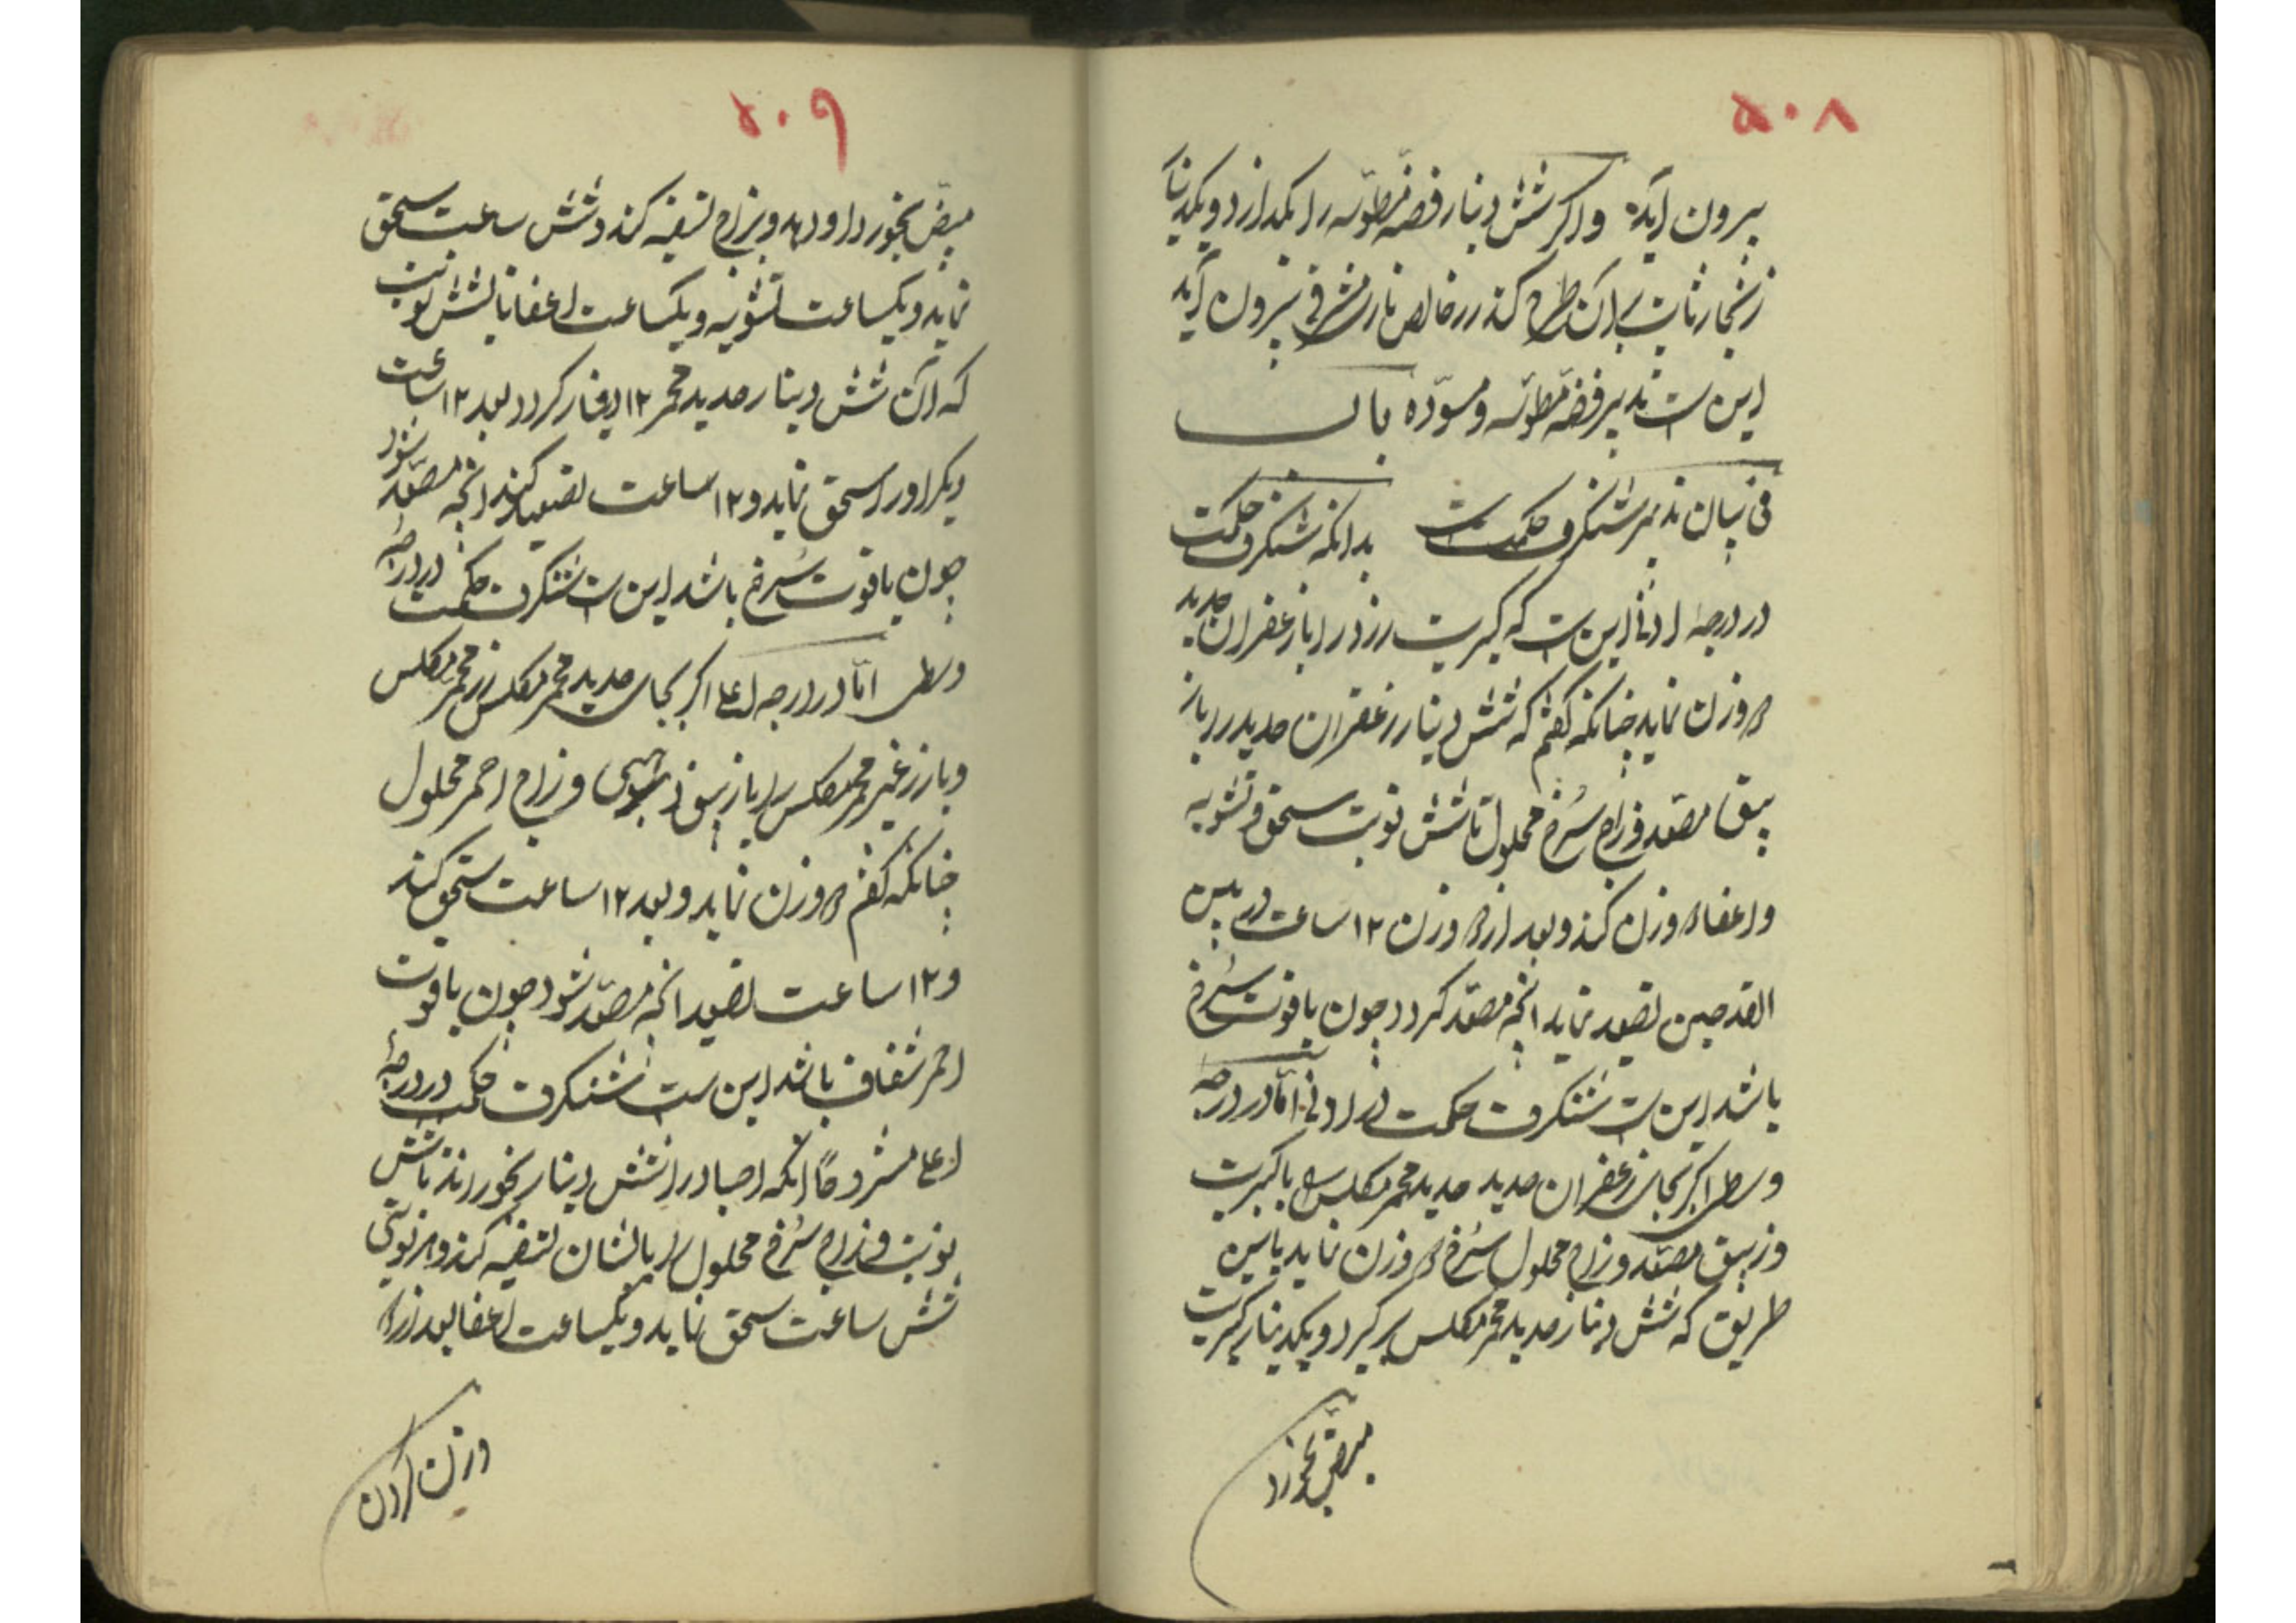 ۵۰۸
بیرون آید واکر شش دینار فضه مطوّسه را بکدازد ویکدینار
زنجار ثابت بر آن طرح کند زر خالص نارمشرقی بیرون آید
این ست تدبیر فضه مطوّسه ومسوّده باب
فی بیان تدبیر شنکرف حکمت بدانکه شنکرف حکمت
در درجه ادنا این ست که کبریت زرد را با زعفران حدید
هموزن نماید چنانکه کفتم که شش دینار زعفران حدید را با ز
یبق مصعّد وزاج سُرخ محلول تا شش نوبت سحق وتشویه
واعفا هموزن کند وبعد از هموزن ۱۲ ساعت در بین
القدحین تصعید نماید انچه مصعّد کردد چون یاقوت سُرخ
باشد این ست شنکرف حکمت در ادنی امّا در درجه
وسطی اکر بجای زعفران حدید حدید محمر مکلس را با کبریت
وزیبق مصعّد وزاج محلول سُرخ هموزن نماید باین
طریق که شش دینار حدید محمر مکلس بر کیرد ویکدینار کبریت
مبیّض بخورد
۵۰۹
مبیّض بخورد او دهد وبزاج تسقیه کند وشش ساعت سحق
نماید ویکساعت تشویه ویکساعت اعفا تا بشش نوبت
که آن شش دینار حدید محمر ۱۲ دینار کردد بعد ۱۲ ساعت
دیکر اورا سحق نماید و۱۲ ساعت تصعید کند انچه مصعّد شود
چون یاقوت سُرخ باشد این ست شنکرف حکمت در درجه
وسطی امّا در درجه اعلا اکر بجای حدید محمر مکلس زر محمر مکلس
ویا زر غیر محمر مکلس را با زیبق وزاج احمر محلول
چنانکه کفتم هموزن نماید وبعد ۱۲ ساعت سحق کند
و۱۲ ساعت تصعید انچه مصعّد شود چون یاقوت
احمر شفاف باشد این ست شنکرف حکمت در درجه
اعلا مشروحاً انکه اجساد را شش دینار بخوراند تا شش
نوبت وزاج سُرخ محلول را بایشان تسقیه کند وهر نوبتی
شش ساعت سحق نماید ویکساعت اعفا بعد از هم
وزن کردن